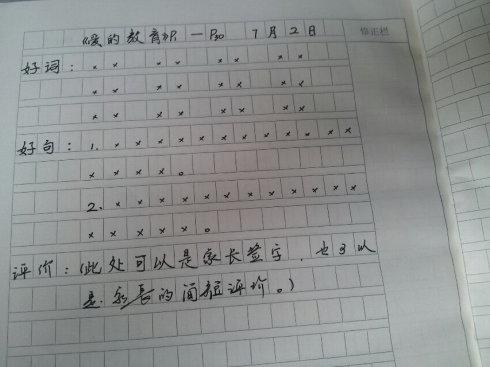 《爱的教育》P1—P30 7月2日 修正栏
好词：×× ×× ×× ××
×× ×× ×× ××
×× ×× ×× ××
好句：1.×××××××××××××
××××。
2.××××××××××××
×××××。
评价：(此处可以是家长签字，也可以
是家长的简短评价。)